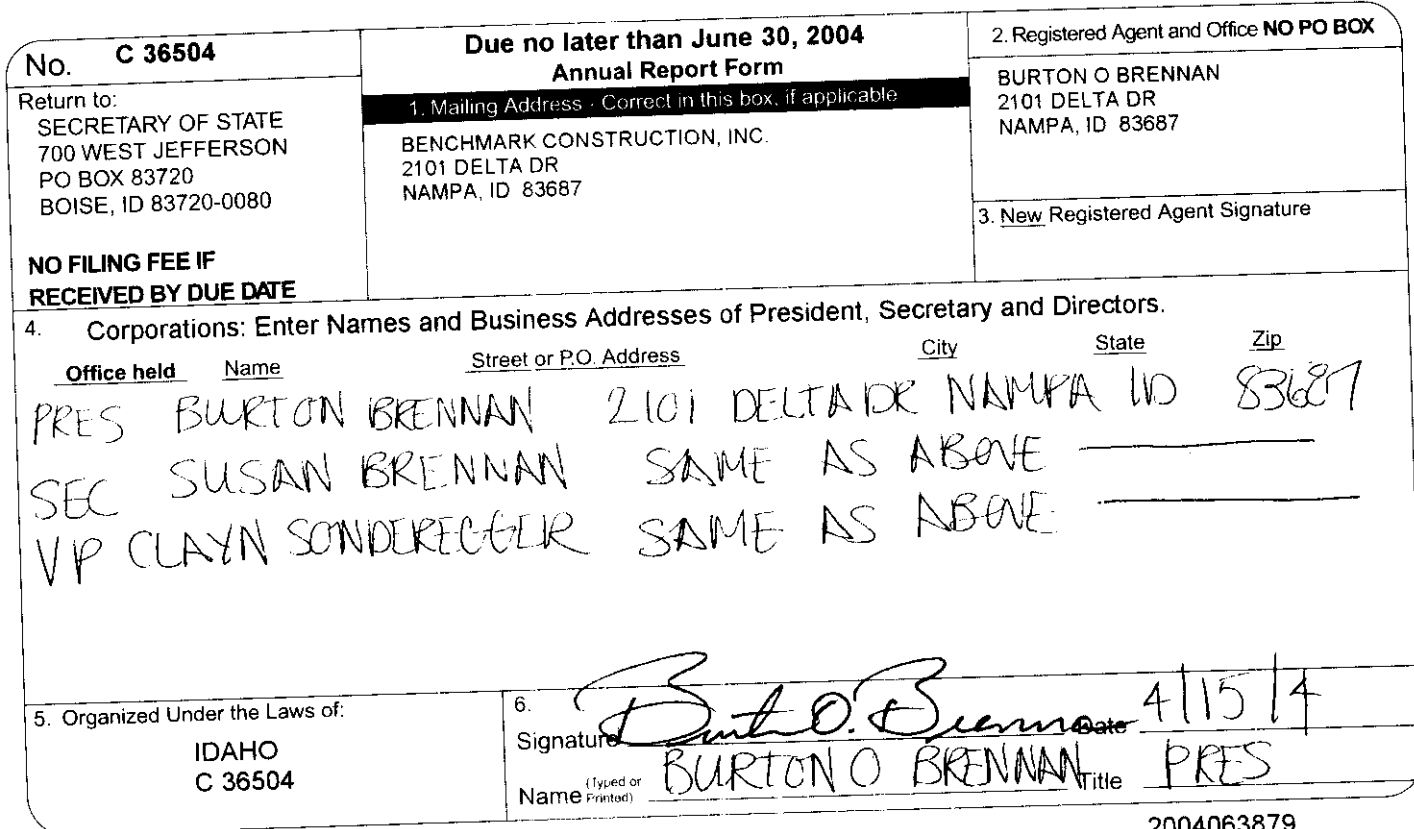 No. C 36504
Return to:
SECRETARY OF STATE
700 WEST JEFFERSON
PO BOX 83720
BOISE, ID 83720-0080
NO FILING FEE IF
RECEIVED BY DUE DATE
Due no later than June 30, 2004
Annual Report Form
1. Mailing Address - Correct in this box, if applicable
BENCHMARK CONSTRUCTION, INC.
2101 DELTA DR
NAMPA, ID 83687
2. Registered Agent and Office NO PO BOX
BURTON O BRENNAN
2101 DELTA DR
NAMPA, ID 83687
3. New Registered Agent Signature
4. Corporations: Enter Names and Business Addresses of President, Secretary and Directors.
Office held Name Street or P.O. Address City State Zip
PRES BURTON BRENNAN 2101 DELTA DR NAMPA ID 83687
SEC SUSAN BRENNAN SAME AS ABOVE
VP CLAYN SONDEREGGER SAME AS ABOVE
5. Organized Under the Laws of:
IDAHO
C 36504
6.
Signature Burton O. Brennan Date 4/15/4
Name (Typed or Printed) BURTON O BRENNAN Title PRES
2004063879